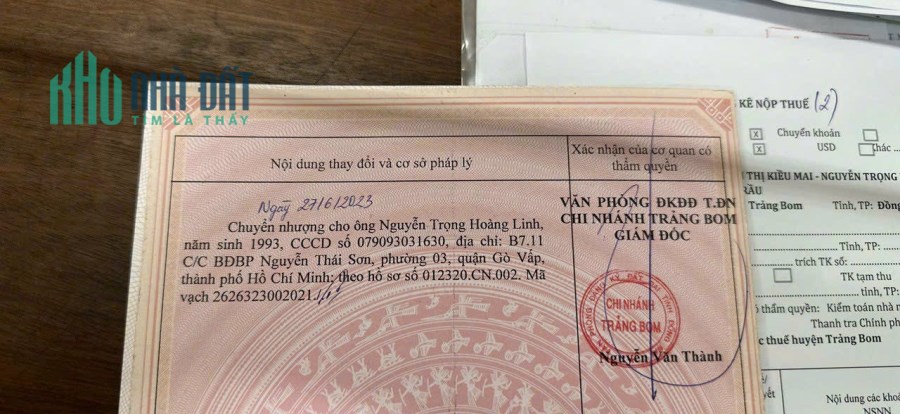 KHO NHÀ ĐẤT
TÌM LÀ THẤY
Nội dung thay đổi và cơ sở pháp lý
Xác nhận của cơ quan có
thẩm quyền
Ngày 27/6/2023
Chuyển nhượng cho ông Nguyễn Trọng Hoàng Linh,
năm sinh 1993, CCCD số 079093031630, địa chỉ: B7.11
C/C BĐBP Nguyễn Thái Sơn, phường 03, quận Gò Vấp,
thành phố Hồ Chí Minh; theo hồ sơ số 012320.CN.002. Mã
vạch 2626323002021
VĂN PHÒNG ĐKĐĐ T.ĐN
CHI NHÁNH TRẢNG BOM
GIÁM ĐỐC
VĂN PHÒNG ĐĂNG KÝ ĐẤT ĐAI TỈNH ĐỒNG
CHI NHÁNH
TRẢNG BOM
Nguyễn Văn Thành
KÊ NỘP THUẾ (2)
x Chuyển khoản
x USD khác
THỊ KIỀU MAI - NGUYỄN TRỌNG
Trảng Bom Tỉnh, TP: Đồng
Tỉnh, TP:
trích TK số:
TK tạm thu
tỉnh, TP:
có thẩm quyền: Kiểm toán nhà
Thanh tra Chính ph
thuế huyện Trảng Bom
Nội dung các kho
NSNN